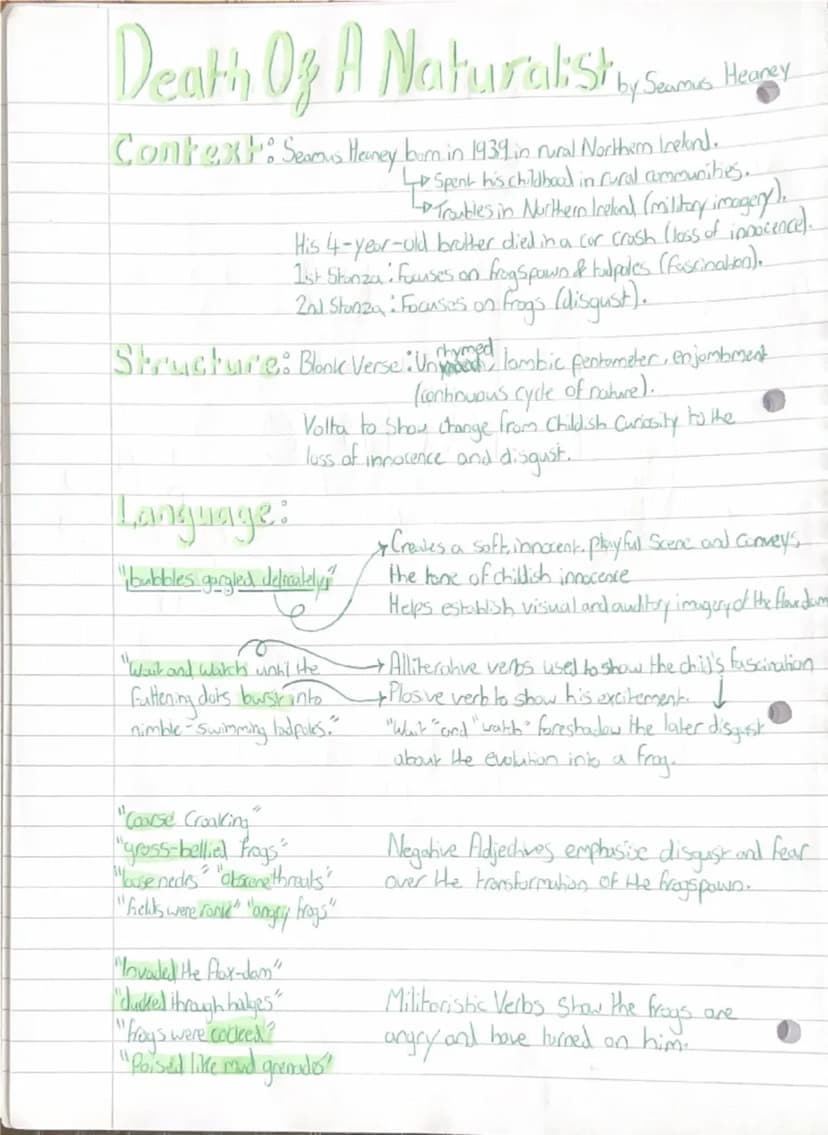 Death Of A Naturalist by Seamus Heaney
Context: Seamus Heaney born in 1939 in rural Northern Ireland.
↳ Spent his childhood in rural communities.
↳ Troubles in Northern Ireland (military imagery).
His 4-year-old brother died in a car crash (loss of innocence).
1st Stanza: Focuses on frogspawn & tadpoles (fascination).
2nd Stanza: Focuses on frogs (disgust).
Structure: Blank Verse: Unrhymed, Iambic pentameter, enjambment
(continuous cycle of nature).
Volta to show change from childish curiosity to the
loss of innocence and disgust.
Language:
"bubbles gargled delicately"
→ Creates a soft, innocent, playful scene and conveys
the tone of childish innocence
Helps establish visual and auditory imagery of the flax dam
"Wait and watch until the
fattening dots burst into
nimble-swimming tadpoles."
→ Alliterative verbs used to show the child's fascination
→ Plosive verb to show his excitement. ↓
"Wait" and "watch" foreshadow the later disgust
about the evolution into a frog.
"Coarse Croaking"
"gross-bellied frogs"
"loose necks" "obscene threats"
"fields were rank" "angry frogs"
Negative Adjectives emphasise disgust and fear
over the transformation of the frogspawn.
"Invaded the flax-dam"
"ducked through hedges"
"frogs were cocked"
"Poised like mud grenades"
Militaristic Verbs show the frogs are
angry and have turned on him.